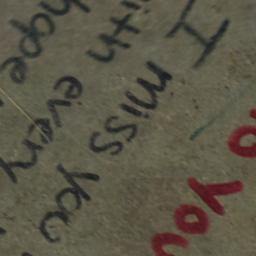 I miss you
ith every
hope
you